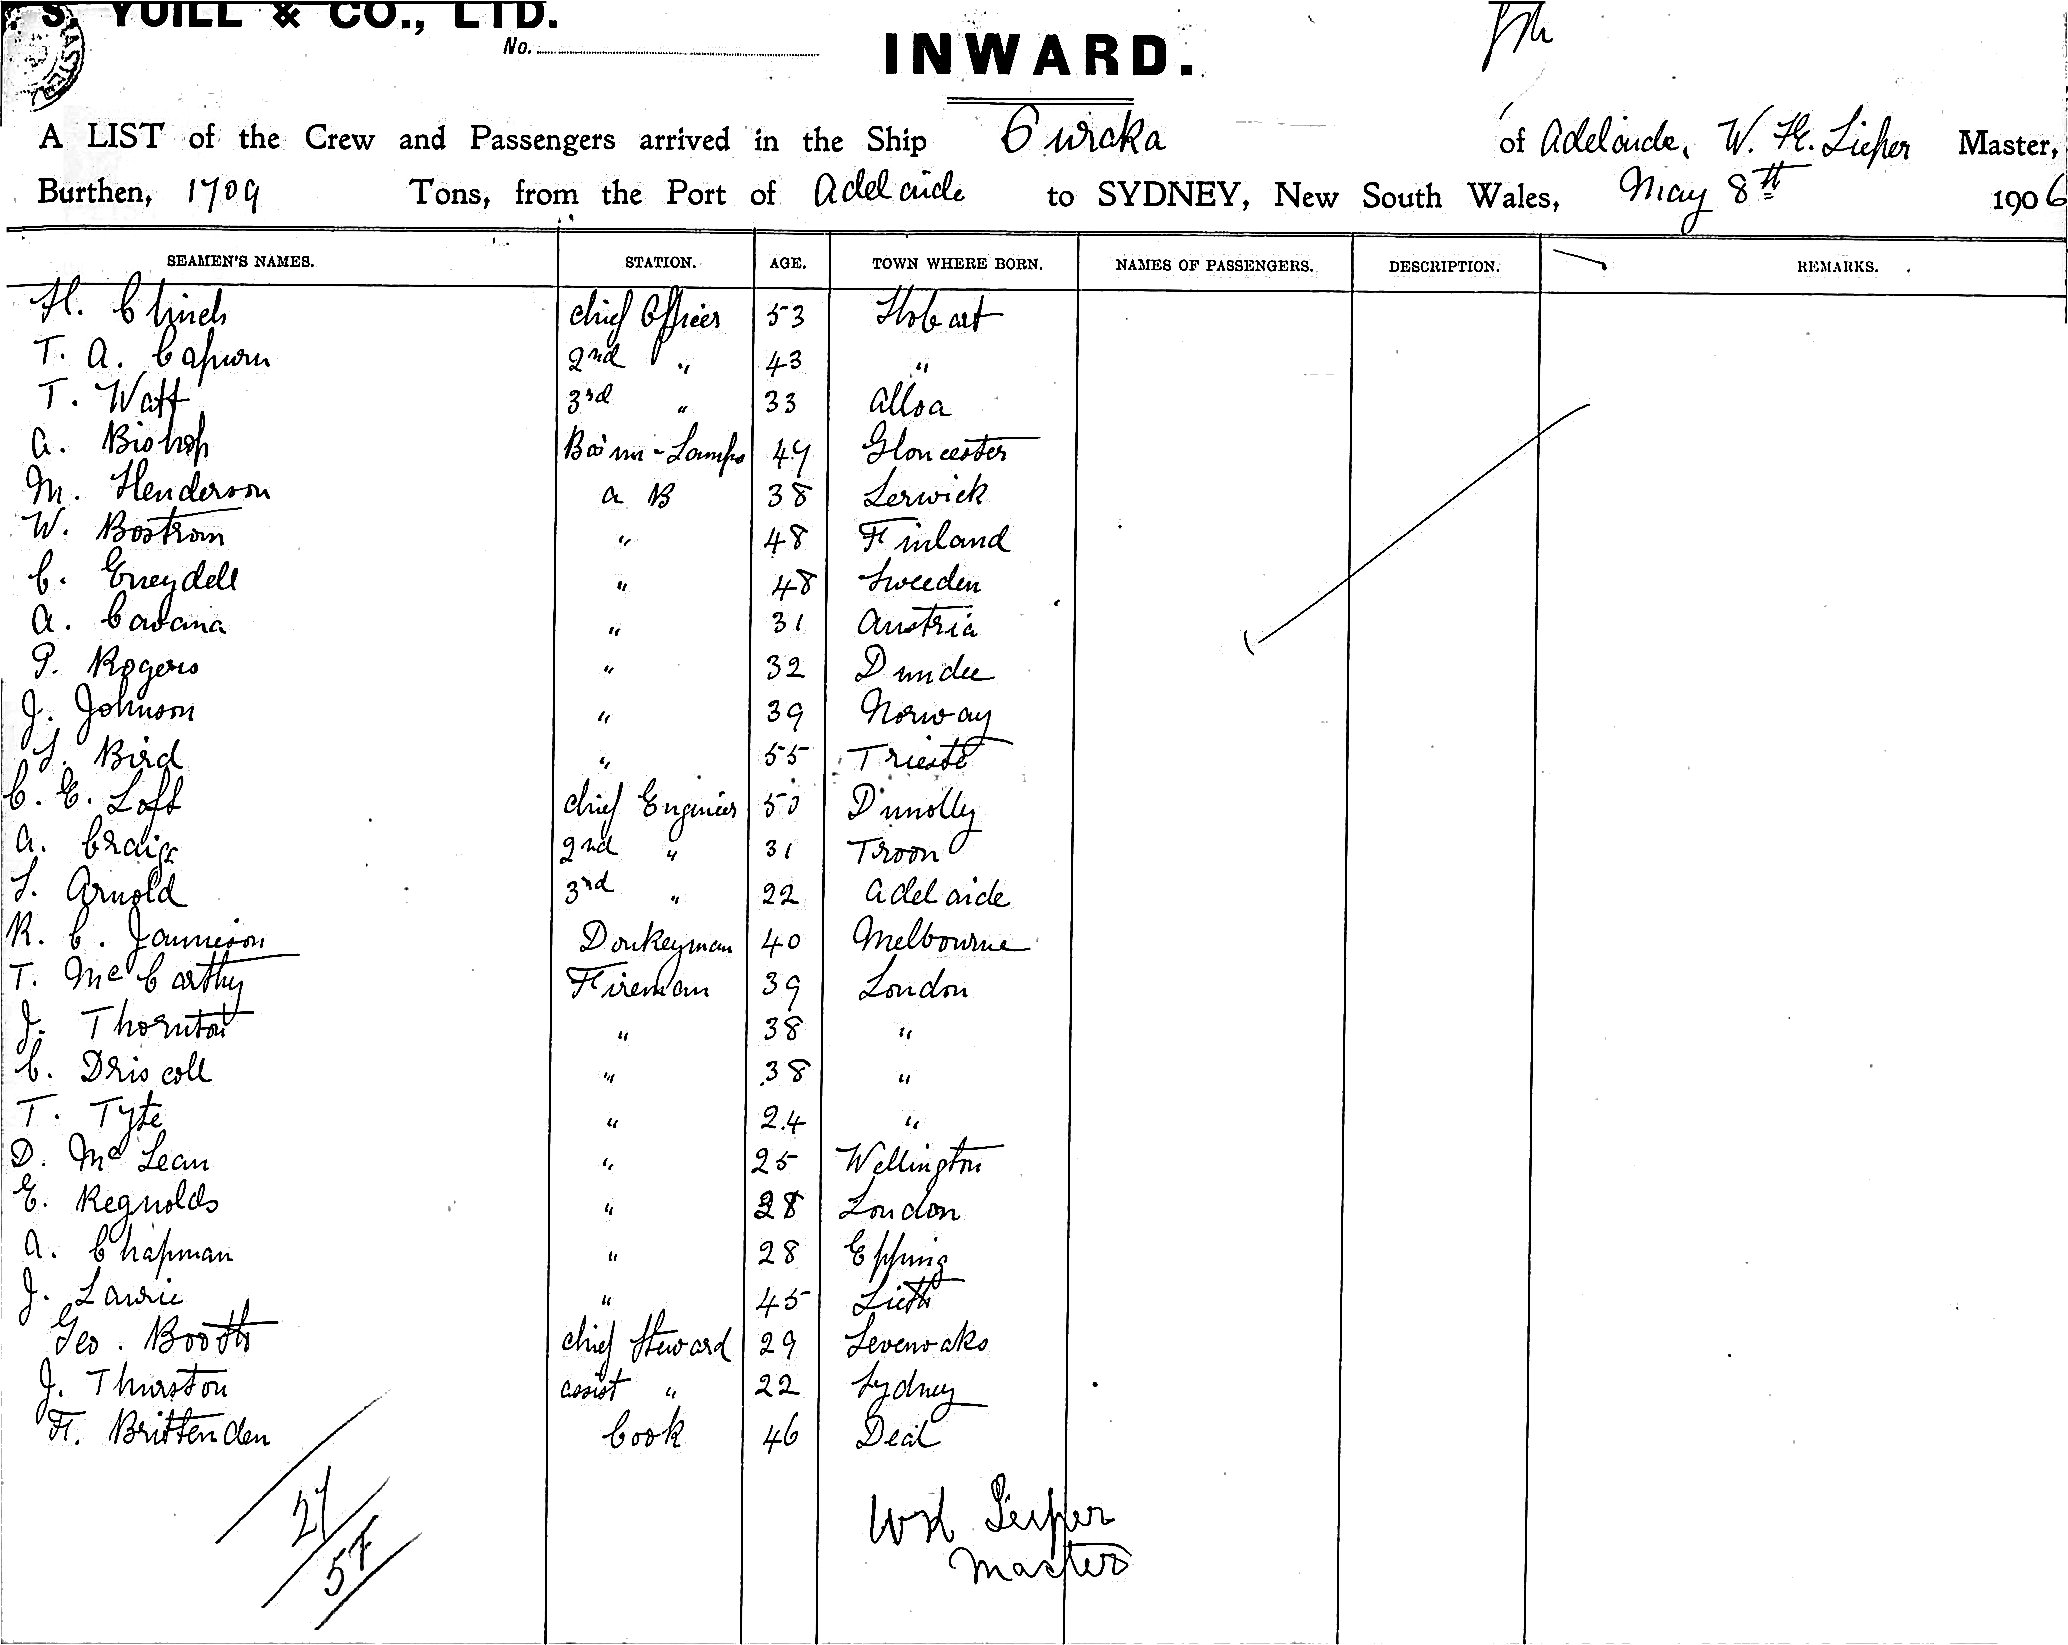 S. YUILL & CO., LTD.
No.
INWARD.
A LIST of the Crew and Passengers arrived in the Ship Eureka of Adelaide, W. H. Lieper Master,
Burthen, 1709 Tons, from the Port of Adelaide to SYDNEY, New South Wales, May 8th 1906
SEAMEN'S NAMES. STATION. AGE. TOWN WHERE BORN. NAMES OF PASSENGERS. DESCRIPTION. REMARKS.
H. Clinch chief Officer 53 Hobart
T. A. Capurn 2nd " 43 "
T. Watt 3rd " 33 Alloa
A. Bishop Bo'sun - Lamps 49 Gloucester
M. Henderson A B 38 Lerwick
W. Bostrom " 48 Finland
C. " 48 Sweeden
A. Cavana " 31 Austria
P. Rogers " 32 Dundee
J. Johnson " 39 Norway
S. Bird " 55 Trieste
C. E. Loft chief Engineer 50 Dunolly
A. Craig 2nd " 31 Troon
S. Arnold 3rd " 22 Adelaide
R. C. Jamieson Donkeyman 40 Melbourne
T. McCarthy Fireman 39 London
J. Thornton " 38 "
C. Driscoll " 38 "
T. Tyte " 24 "
D. McLean " 25 Wellington
E. Reynolds " 28 London
A. Chapman " 28 Epping
J. Lawrie " 45 Lieth
Geo. Booth chief Steward 29 Sevenoaks
J. Thurston assist " 22 Sydney
H. Brittenden Cook 46 Deal
27
57
WH Lieper
Master